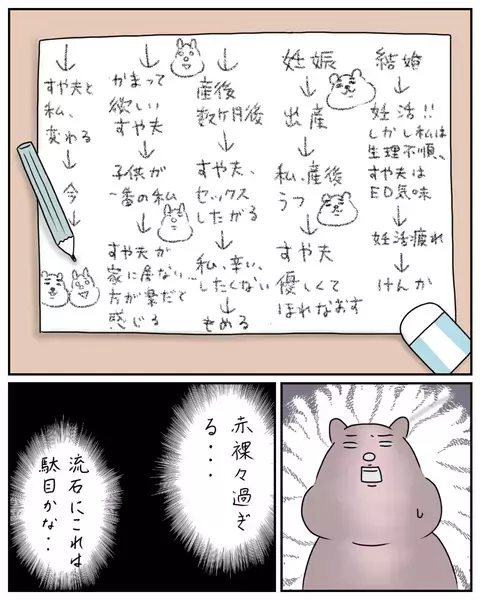 結婚
↓
妊活!!
しかし私は
生理不順、
すや夫は
ED気味
↓
妊活疲れ
↓
けんか
妊娠
↓
出産
↓
私、産後
うつ
↓
すや夫
優しくて
ほれなおす
↓
産後
数ケ月後
↓
すや夫、
セックス
したがる
↓
私、辛い、
したくない
↓
もめる
↓
かまって
欲しい
すや夫
↓
子供が
一番の私
↓
すや夫が
家に居ない
方が楽だと
感じる
↓
すや夫と
私、
変わる
↓
今
↓
赤裸々過ぎ
る・・・
流石にこれは
駄目かな・・